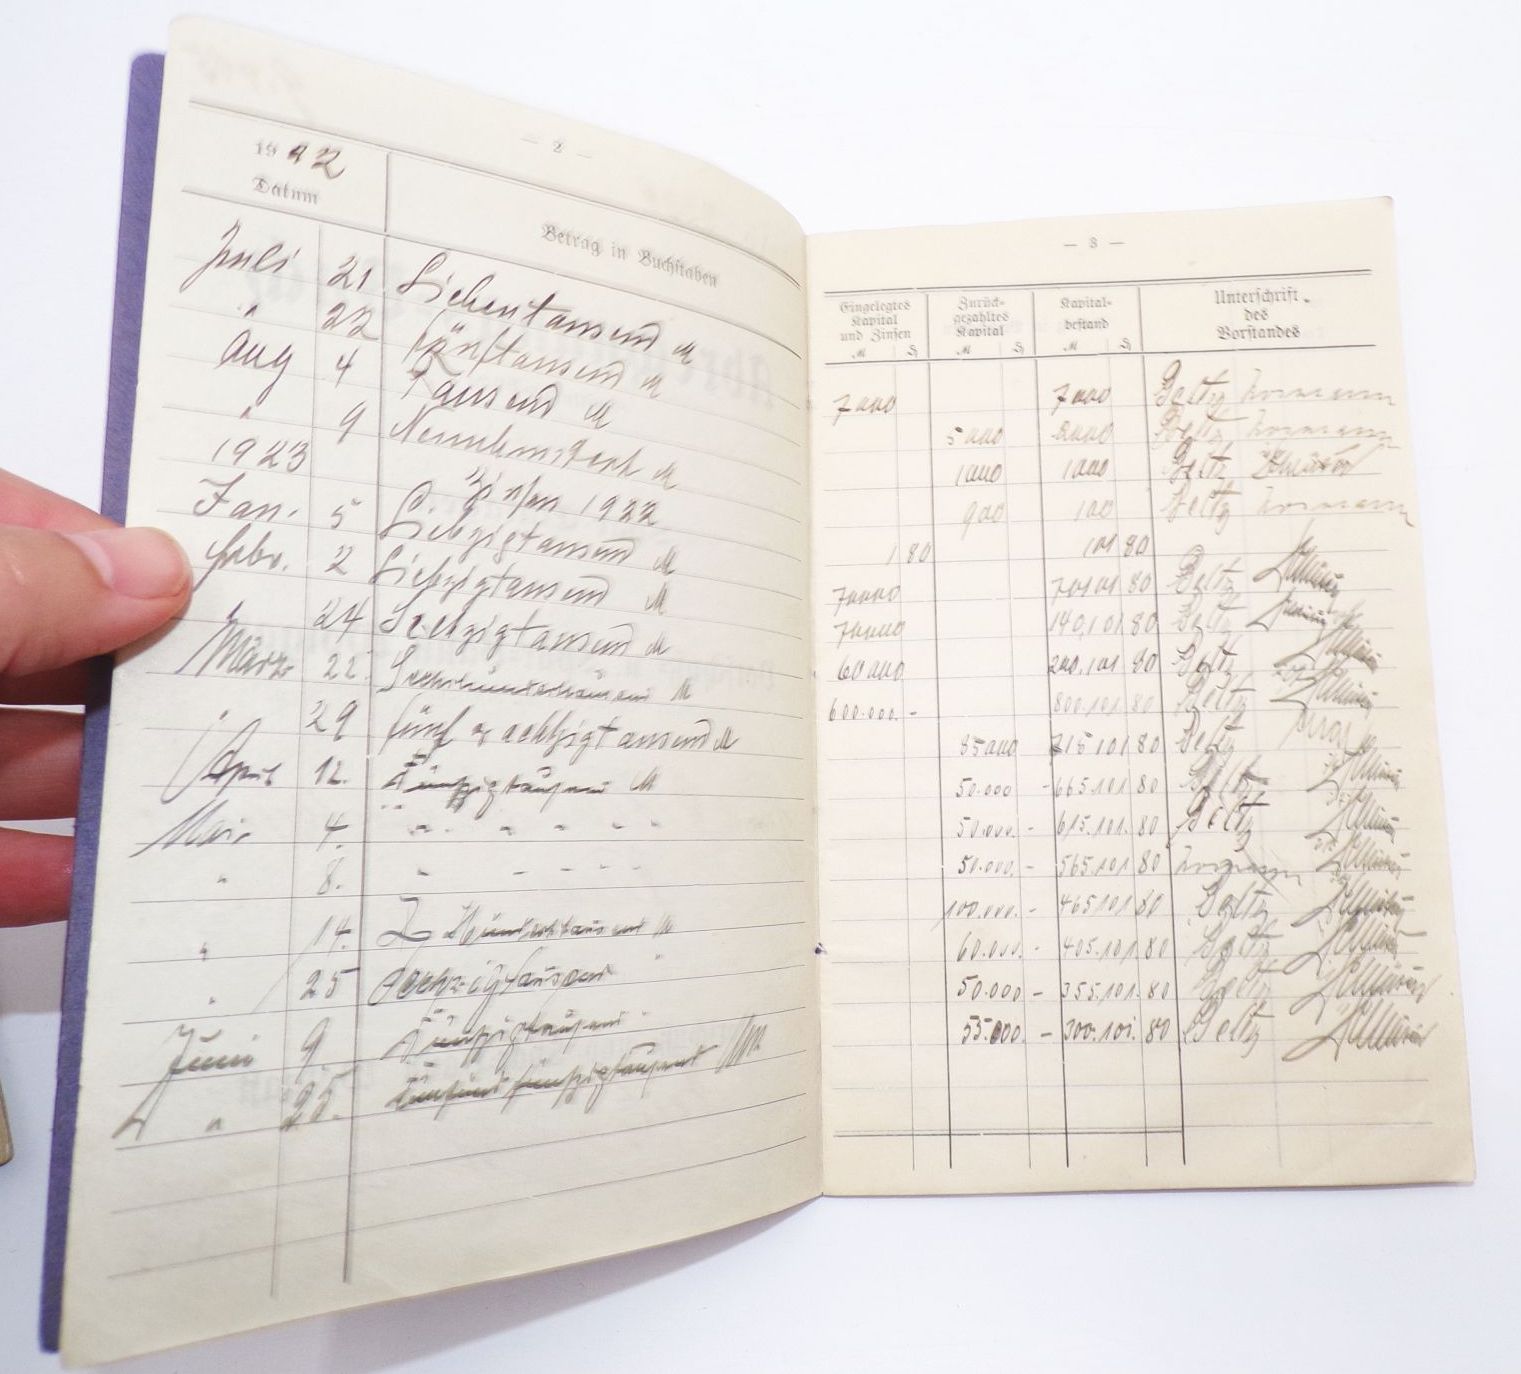 — 2 —
19 22
Datum
Betrag in Buchstaben
Juli 21 Siebentausend M
" 22 fünftausend M
Aug 4 Tausend M
" 9 Neunhundert M
1923 Zinsen 1922
Jan. 5 Siebzigtausend M
Febr. 2 Siebzigtausend M
" 24 Sechzigtausend M
März 22. Sechshunderttausend M
" 29 fünf u achtzigtausend M
April 12. Fünfzigtausend M
Mai 4. " " " " "
" 8. " " " "
" 14. Hunderttausend M
" 25 Sechzigtausend "
Juni 9. Fünfzigtausend "
" 25. Fünfundfünfzigtausend M
— 3 —
Eingelegtes Kapital und Zinsen
Zurückgezahltes Kapital
Kapitalbestand
Unterschrift des Vorstandes
M ₰ M ₰ M ₰
7000 7000 Beltz
5000 2000 Beltz
1000 1000 Beltz
900 100 Beltz
1 80 101 80
70000 70101 80 Beltz
70000 140,101 80 Beltz
60000 200,101 80 Beltz
600.000. - 800.101 80 Beltz
85000 715101 80 Beltz
50.000 - 665.101 80 Beltz
50.000. - 615.101. 80 Beltz
50.000. - 565.101 80
100.000. - 465101 80 Beltz
60.000. - 405.101. 80 Beltz
50.000 - 355.101. 80 Beltz
55.000. - 300.101. 80 Beltz